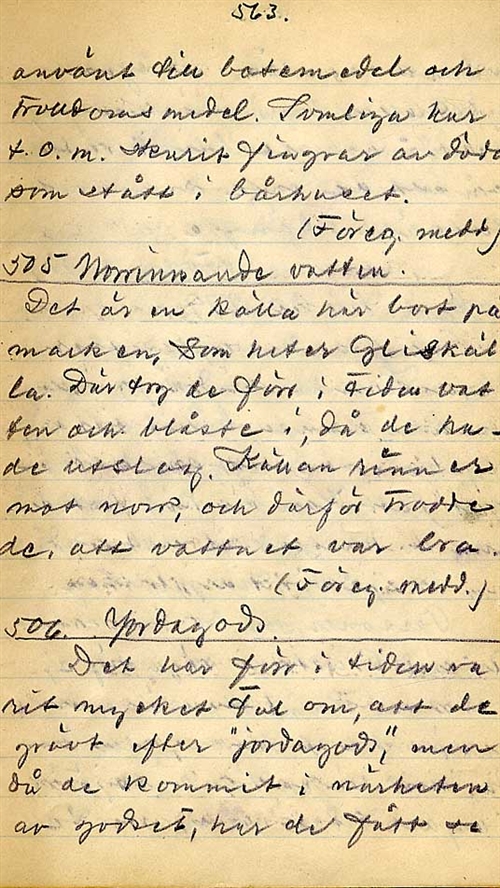 563.
använt till botemedel och
trolldomsmedel. Somliga har
t.o.m. skurit fingrar av döda
som stått i bårhuset.
(Föreg. medd.)
505 Norrinnande vatten.
Det är en källa här bort på
marken, som heter Gliskäl
la. Där tog de förr i tiden vat
ten och blåste i, då de ha-
de utslag. Källan rinner
mot norr, och därför trodde
de, att vattnet var bra.
(Föreg. medd.)
506. Jordagods.
Det har förr i tiden va
rit mycket tal om, att de
grävt efter "jordagods," men
då de kommit i närheten
av godset, har de fått se